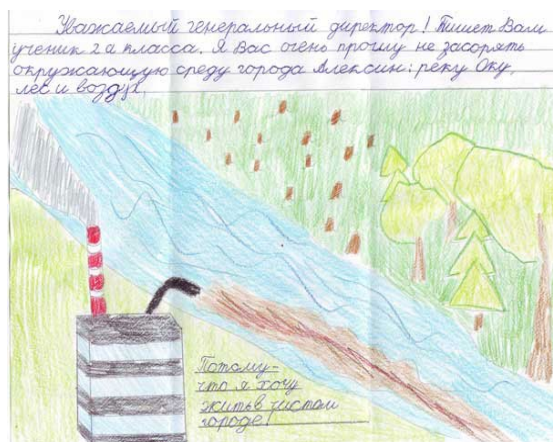 Уважаемый генеральный директор! Пишет Вам
ученик 2 а класса. Я Вас очень прошу не засорять
окружающую среду города Алексин: реку Оку,
лес и воздух.
Потому-
что я хочу
жить в чистом
городе!